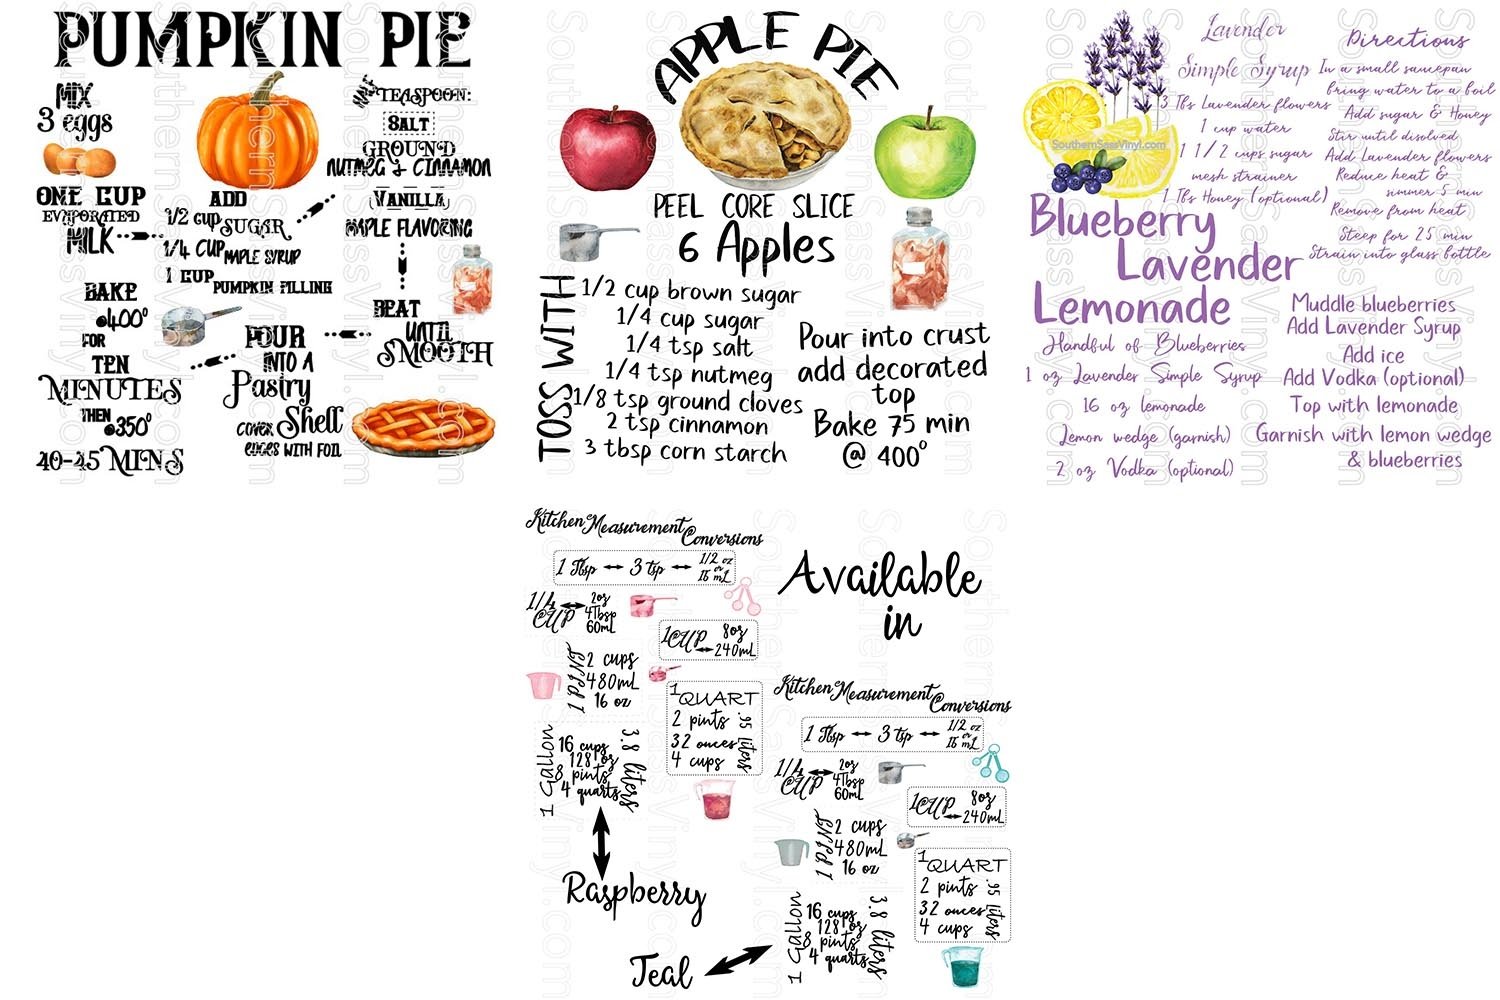 PUMPKIN PIE
MIX
3 eggs
ONE CUP
EVAPORATED
MILK
ADD
1/2 cup SUGAR
1/4 CUP MAPLE SYRUP
1 CUP PUMPKIN FILLING
HALF TEASPOON:
SALT
GROUND
NUTMEG & CINNAMON
VANILLA
MAPLE FLAVORING
BEAT
UNTIL
SMOOTH
POUR
INTO A
Pastry
Shell
COVER
EDGES WITH FOIL
BAKE
@400°
FOR
TEN
MINUTES
THEN
@350°
40-45 MINS
APPLE PIE
PEEL CORE SLICE
6 Apples
TOSS WITH
1/2 cup brown sugar
1/4 cup sugar
1/4 tsp salt
1/4 tsp nutmeg
1/8 tsp ground cloves
2 tsp cinnamon
3 tbsp corn starch
Pour into crust
add decorated
top
Bake 75 min
@ 400°
Lavender
Simple Syrup
3 Tbs Lavender flowers
1 cup water
1 1/2 cups sugar
mesh strainer
1 Tbs Honey (optional)
Directions
In a small saucepan
bring water to a boil
Add sugar & Honey
Stir until disolved
Add Lavender flowers
Reduce heat &
simmer 5 min
Remove from heat
Steep for 25 min
Strain into glass bottle
SouthernSassVinyl.com
Blueberry
Lavender
Lemonade
Handful of Blueberries
1 oz Lavender Simple Syrup
16 oz lemonade
Lemon wedge (garnish)
2 oz Vodka (optional)
Muddle blueberries
Add Lavender Syrup
Add ice
Add Vodka (optional)
Top with lemonade
Garnish with lemon wedge
& blueberries
Kitchen Measurement
Conversions
1 Tbsp 3 tsp 1/2 oz
or
15 mL
1/4
CUP
2oz
4Tbsp
60mL
1CUP 8oz
240mL
1 PINT
2 cups
480mL
16 oz
1 QUART
2 pints
32 ounces
4 cups
.95 liters
1 Gallon
16 cups
128 oz
8 pints
4 quarts
3.8 liters
Raspberry
Available
in
Kitchen Measurement
Conversions
1 Tbsp 3 tsp 1/2 oz
or
15 mL
1/4
CUP
2oz
4Tbsp
60mL
1CUP 8oz
240mL
1 PINT
2 cups
480mL
16 oz
1 QUART
2 pints
32 ounces
4 cups
.95 liters
1 Gallon
16 cups
128 oz
8 pints
4 quarts
3.8 liters
Teal